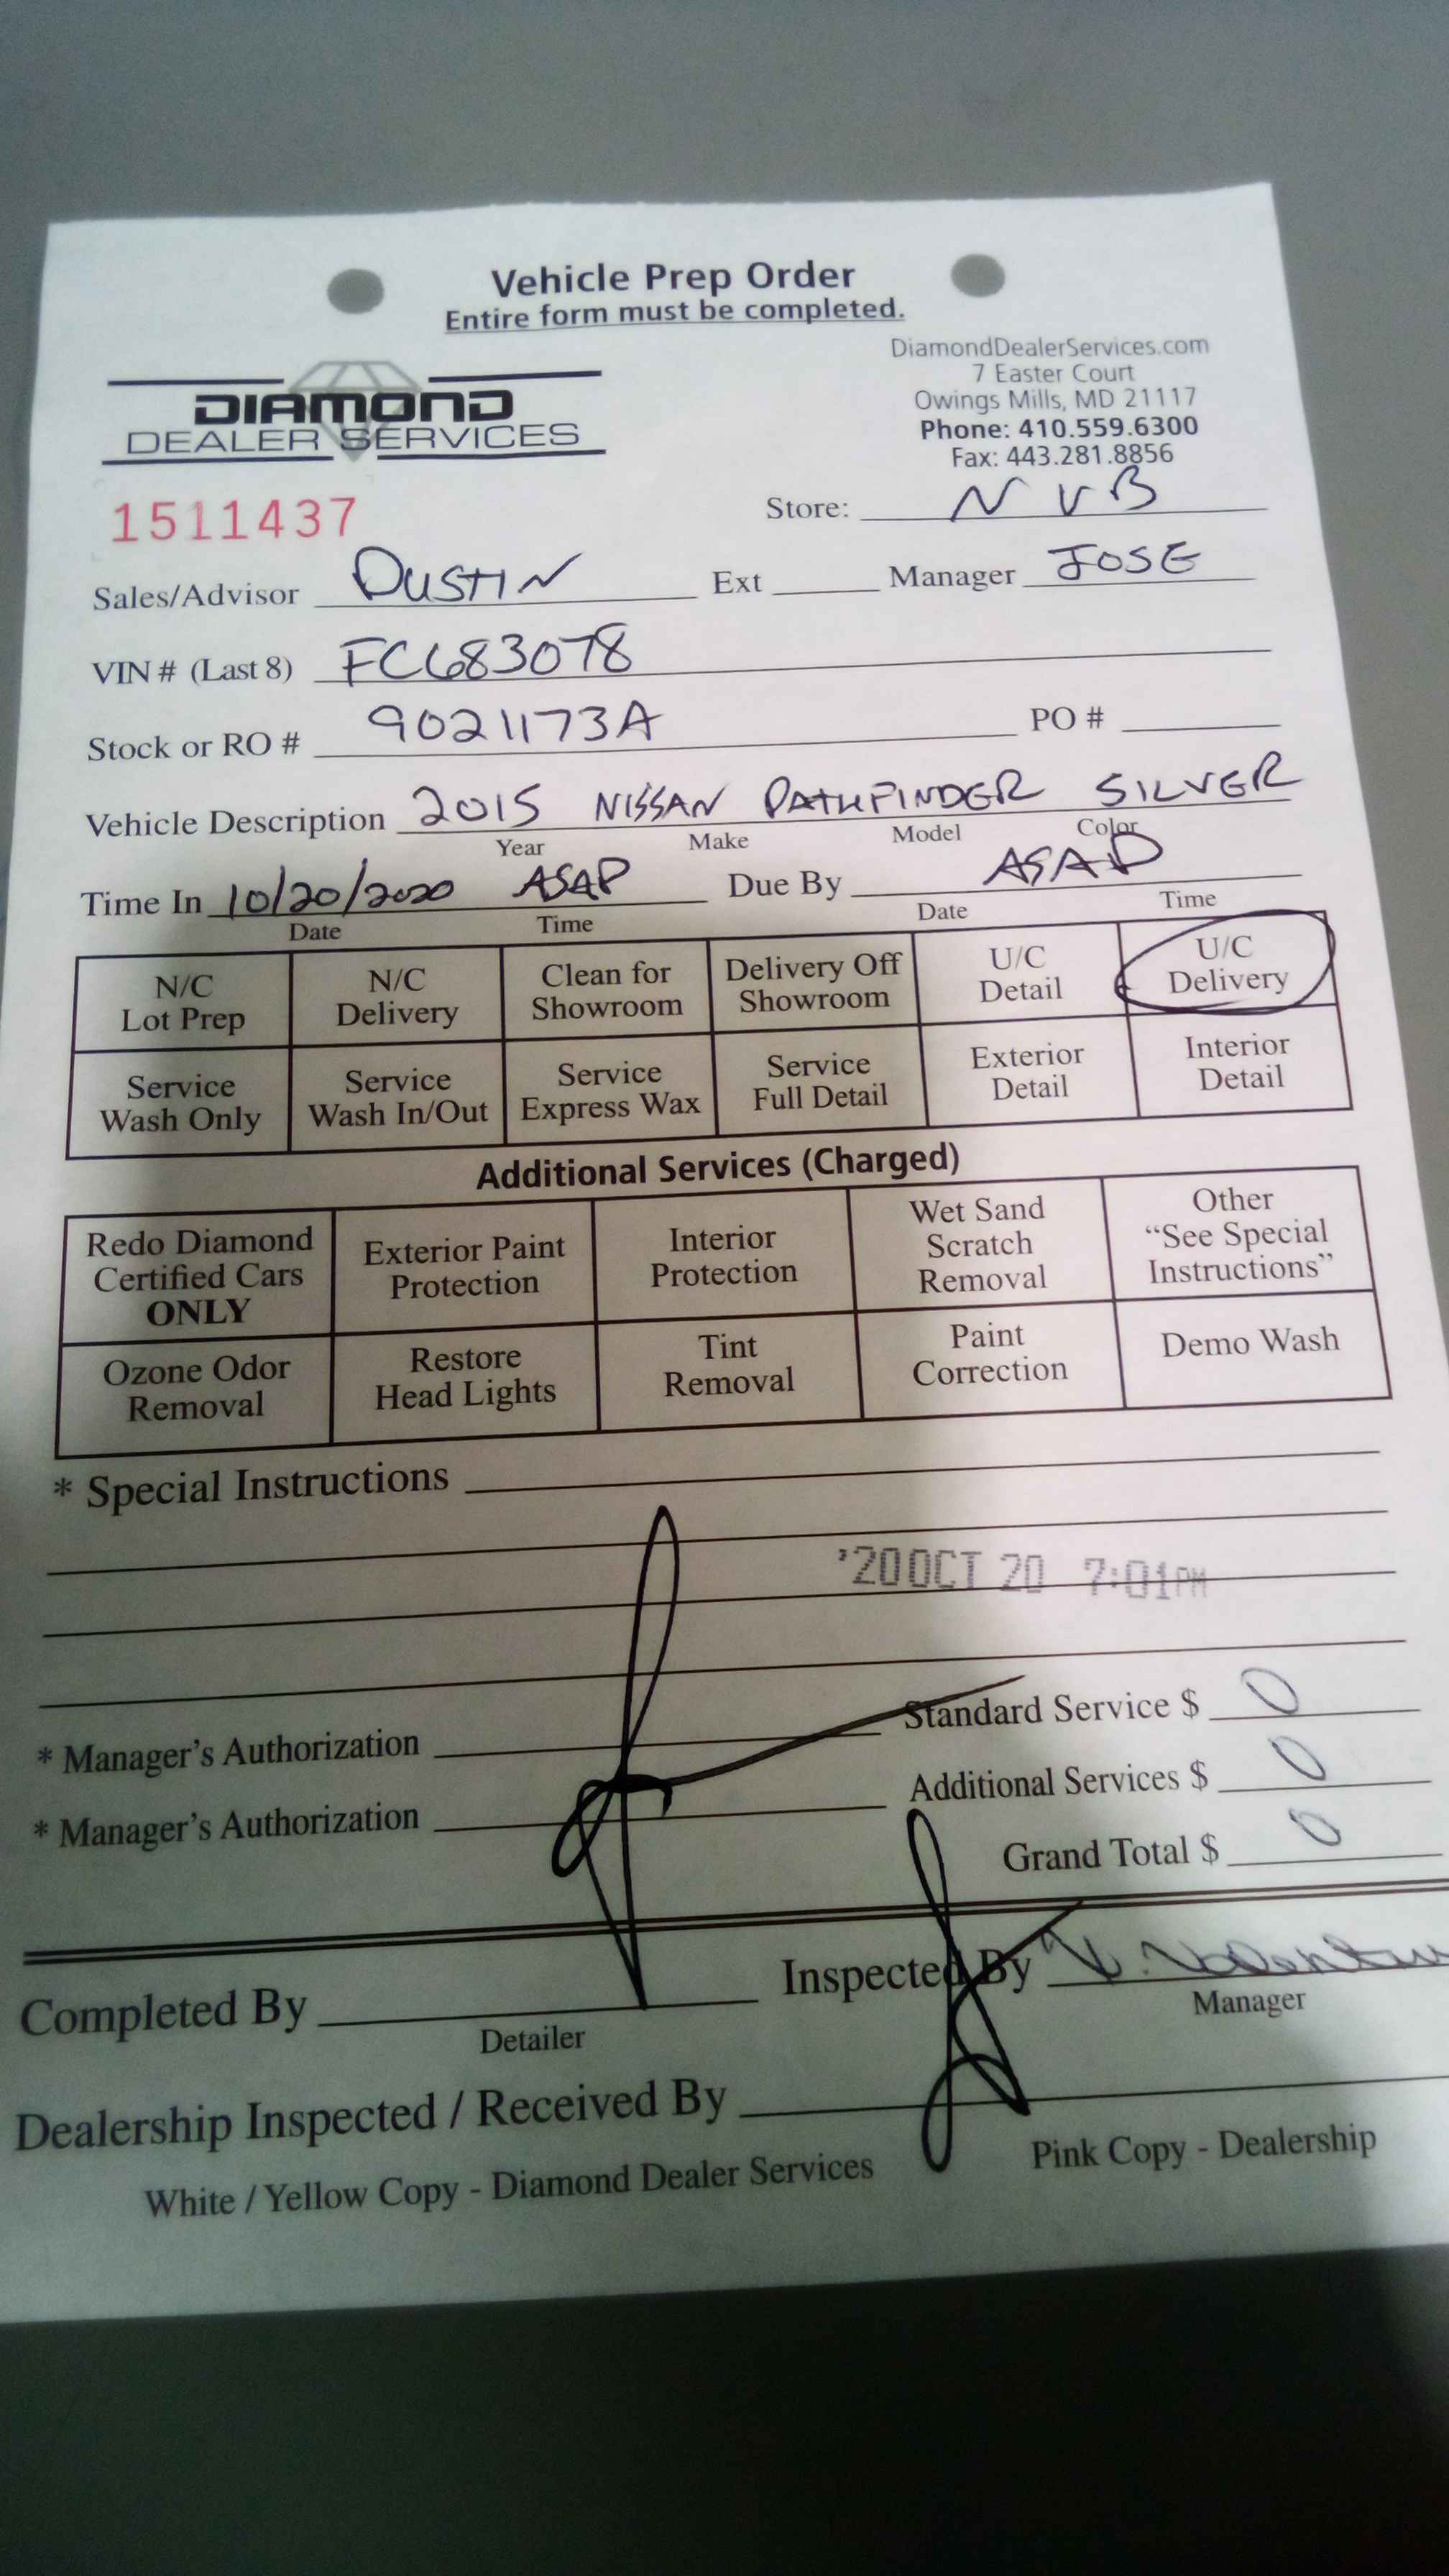 Vehicle Prep Order
Entire form must be completed.
DIAMOND
DEALER SERVICES
DiamondDealerServices.com
7 Easter Court
Owings Mills, MD 21117
Phone: 410.559.6300
Fax: 443.281.8856
1511437
Store: NVB
Sales/Advisor DUSTIN Ext Manager JOSE
VIN # (Last 8) FC683078
Stock or RO # 9021173A PO #
Vehicle Description 2015 NISSAN PATHFINDER SILVER
Year Make Model Color
Time In 10/20/2020 ASAP Due By ASAP
Date Time Date Time
N/C Lot Prep
N/C Delivery
Clean for Showroom
Delivery Off Showroom
U/C Detail
U/C Delivery
Service Wash Only
Service Wash In/Out
Service Express Wax
Service Full Detail
Exterior Detail
Interior Detail
Additional Services (Charged)
Redo Diamond Certified Cars ONLY
Exterior Paint Protection
Interior Protection
Wet Sand Scratch Removal
Other "See Special Instructions"
Ozone Odor Removal
Restore Head Lights
Tint Removal
Paint Correction
Demo Wash
* Special Instructions
'20 OCT 20 7:01PM
* Manager's Authorization
Standard Service $ 0
* Manager's Authorization
Additional Services $ 0
Grand Total $ 0
Completed By
Detailer
Inspected By
Manager
Dealership Inspected / Received By
White / Yellow Copy - Diamond Dealer Services
Pink Copy - Dealership